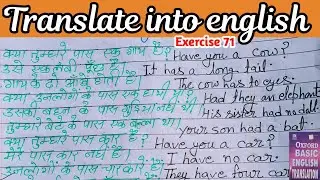 Translate into english
Exercise 71
क्या तुम्हारे पास एक गाय है? Have you a cow?
उसे एक लम्बी पूँछ है It has a long tail.
गाय के दो आँखें होती हैं। The cow has to eyes.
क्या उनलोगों को एक हाथी था? Had they an elephant
उसकी बहन के पास गुड़िया नहीं थी। His sister had no doll
के पास एक बल्ला था। your son had a bat.
क्या तुम्हारे पास कार है? Have you a car?
मेरे पास कार नहीं है। I have no car.
उनलोगों के पास चार कार They have four car
OXFORD
BASIC
ENGLISH
TRANSLATION